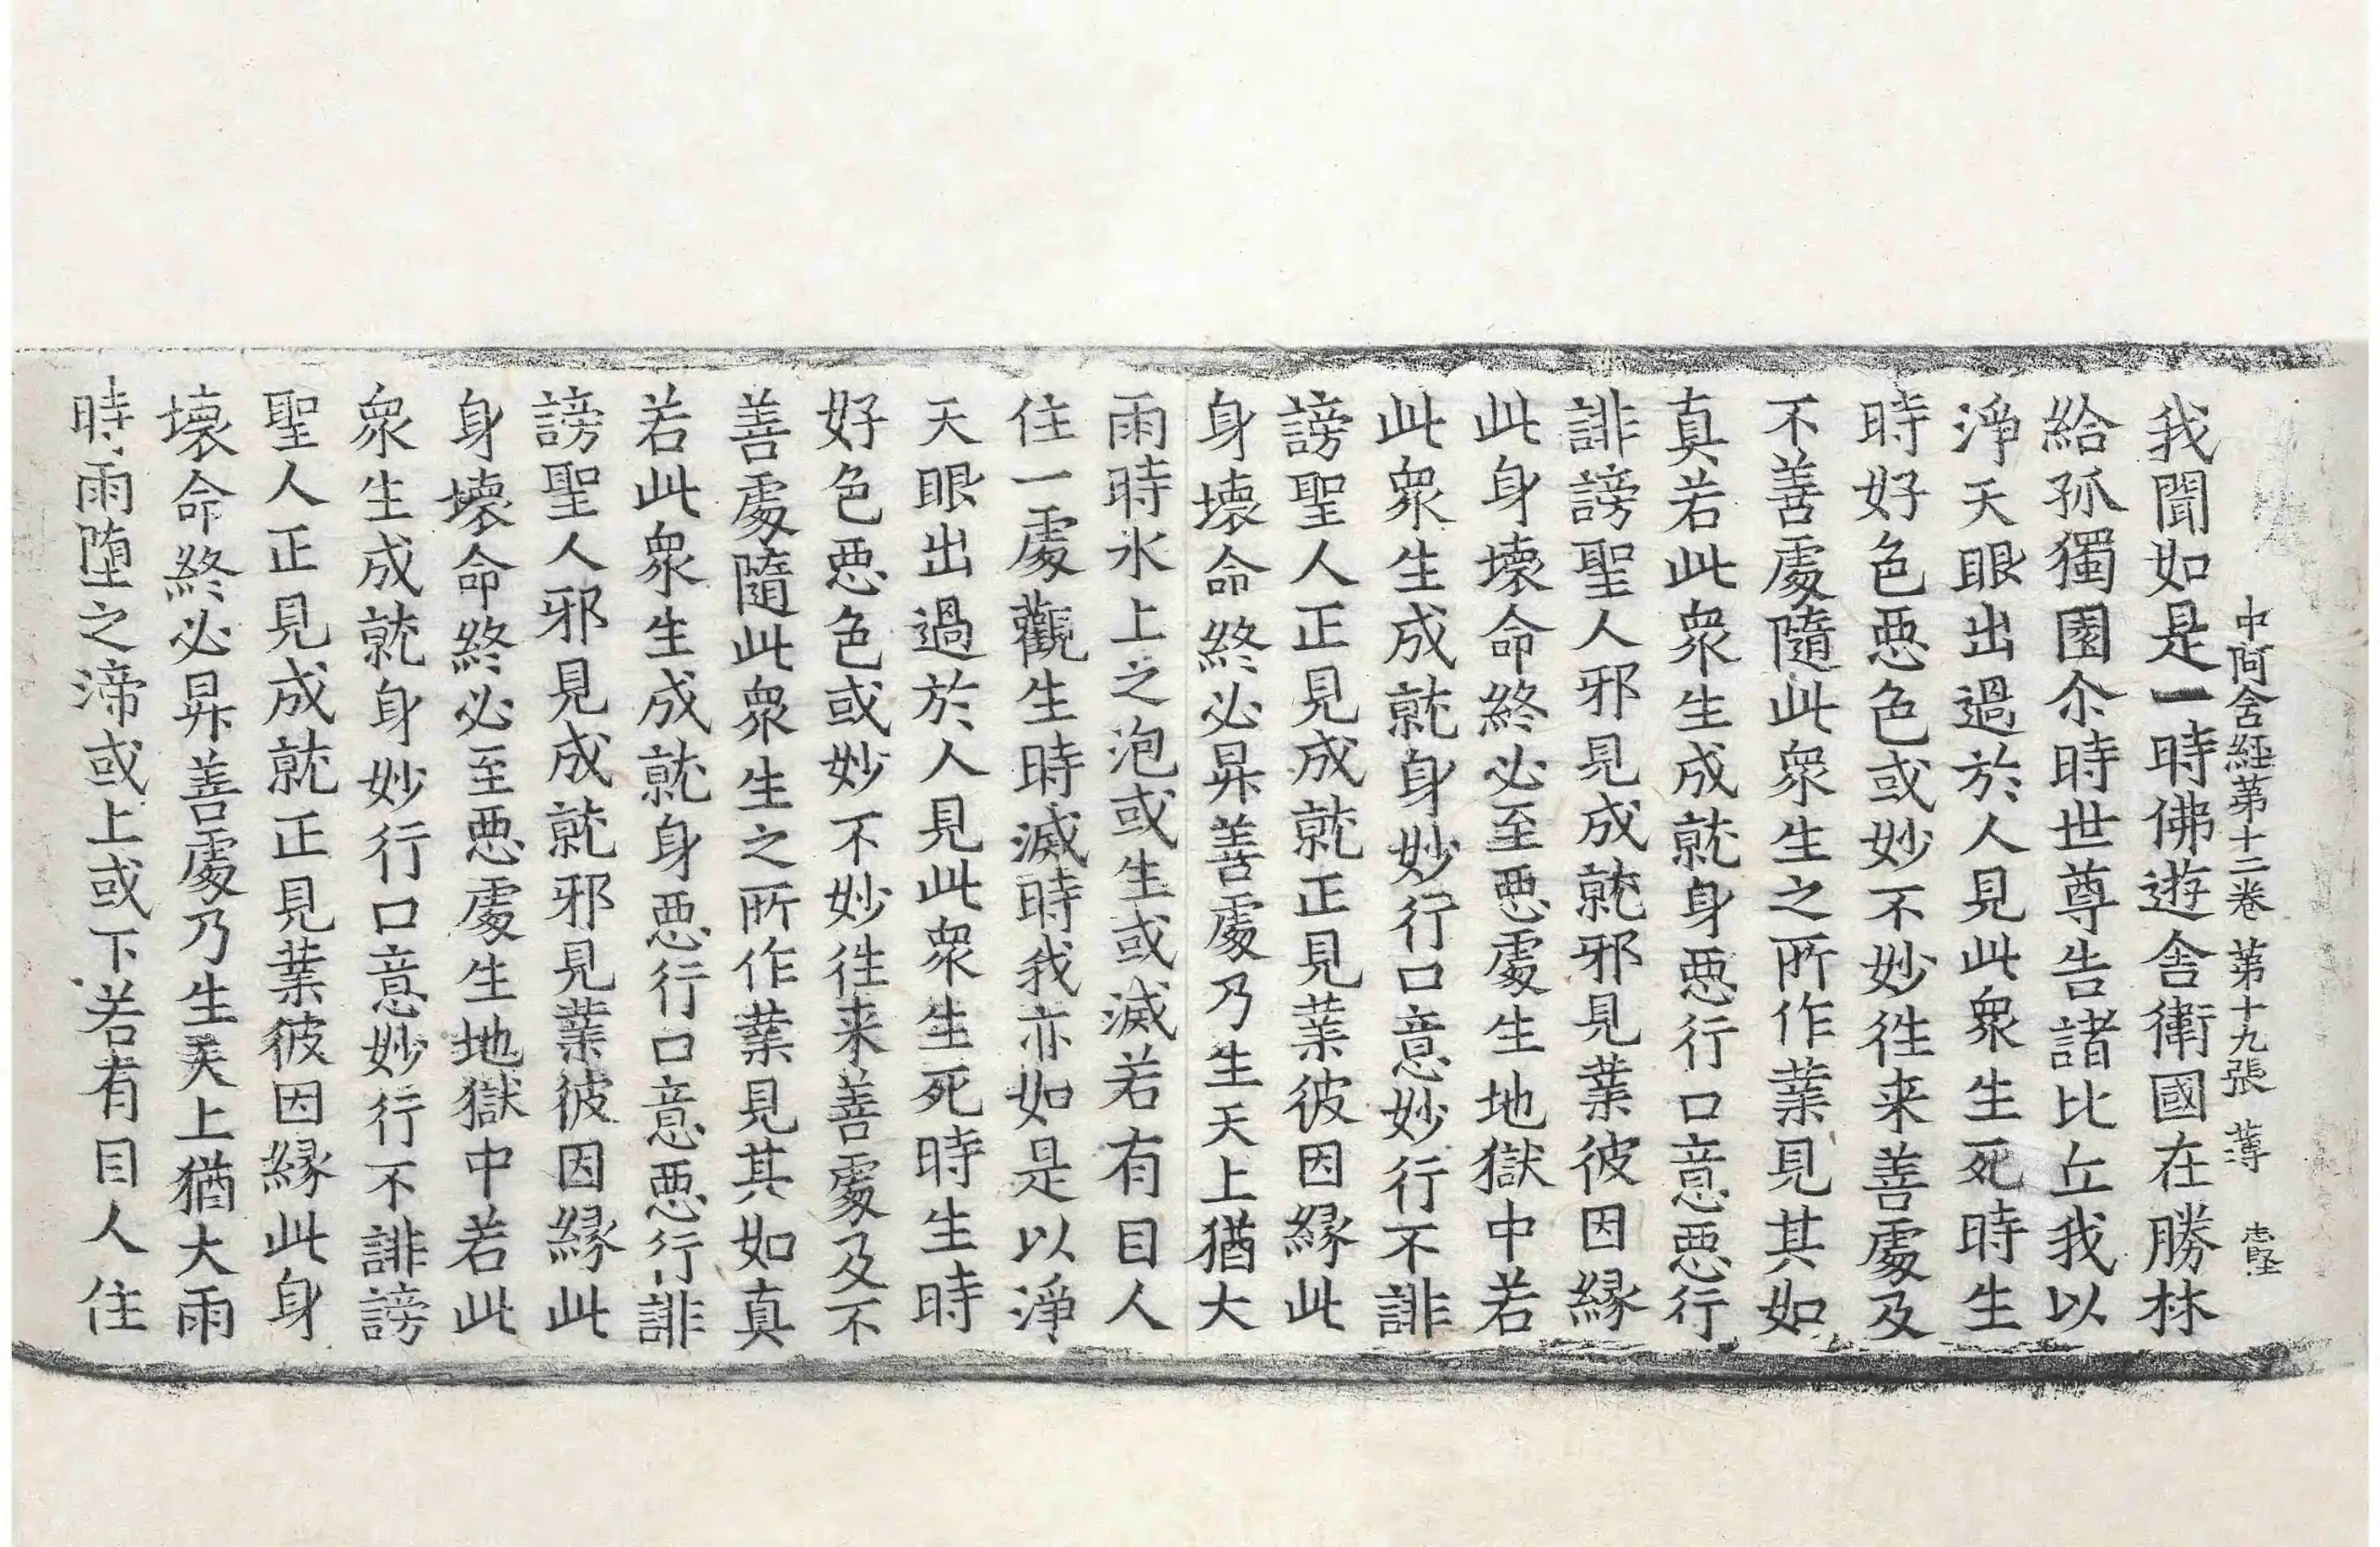 中阿含経第十二巻 第十九張 薄
我聞如是一時佛遊舎衛國在勝林
給孤獨園尒時世尊告諸比丘我以
淨天眼出過於人見此衆生死時生
時好色惡色或妙不妙徃来善處及
不善處隨此衆生之所作業見其如
真若此衆生成就身惡行口意惡行
誹謗聖人邪見成就邪見業彼因縁
此身壞命終必至惡處生地獄中若
此衆生成就身妙行口意妙行不誹
謗聖人正見成就正見業彼因縁此
身壞命終必昇善處乃生天上猶大
雨時水上之泡或生或滅若有目人
住一處觀生時滅時我亦如是以淨
天眼出過於人見此衆生死時生時
好色惡色或妙不妙徃来善處及不
善處隨此衆生之所作業見其如真
若此衆生成就身惡行口意惡行誹
謗聖人邪見成就邪見業彼因縁此
身壞命終必至惡處生地獄中若此
衆生成就身妙行口意妙行不誹謗
聖人正見成就正見業彼因縁此身
壞命終必昇善處乃生天上猶大雨
時雨墮之渧或上或下若有目人住